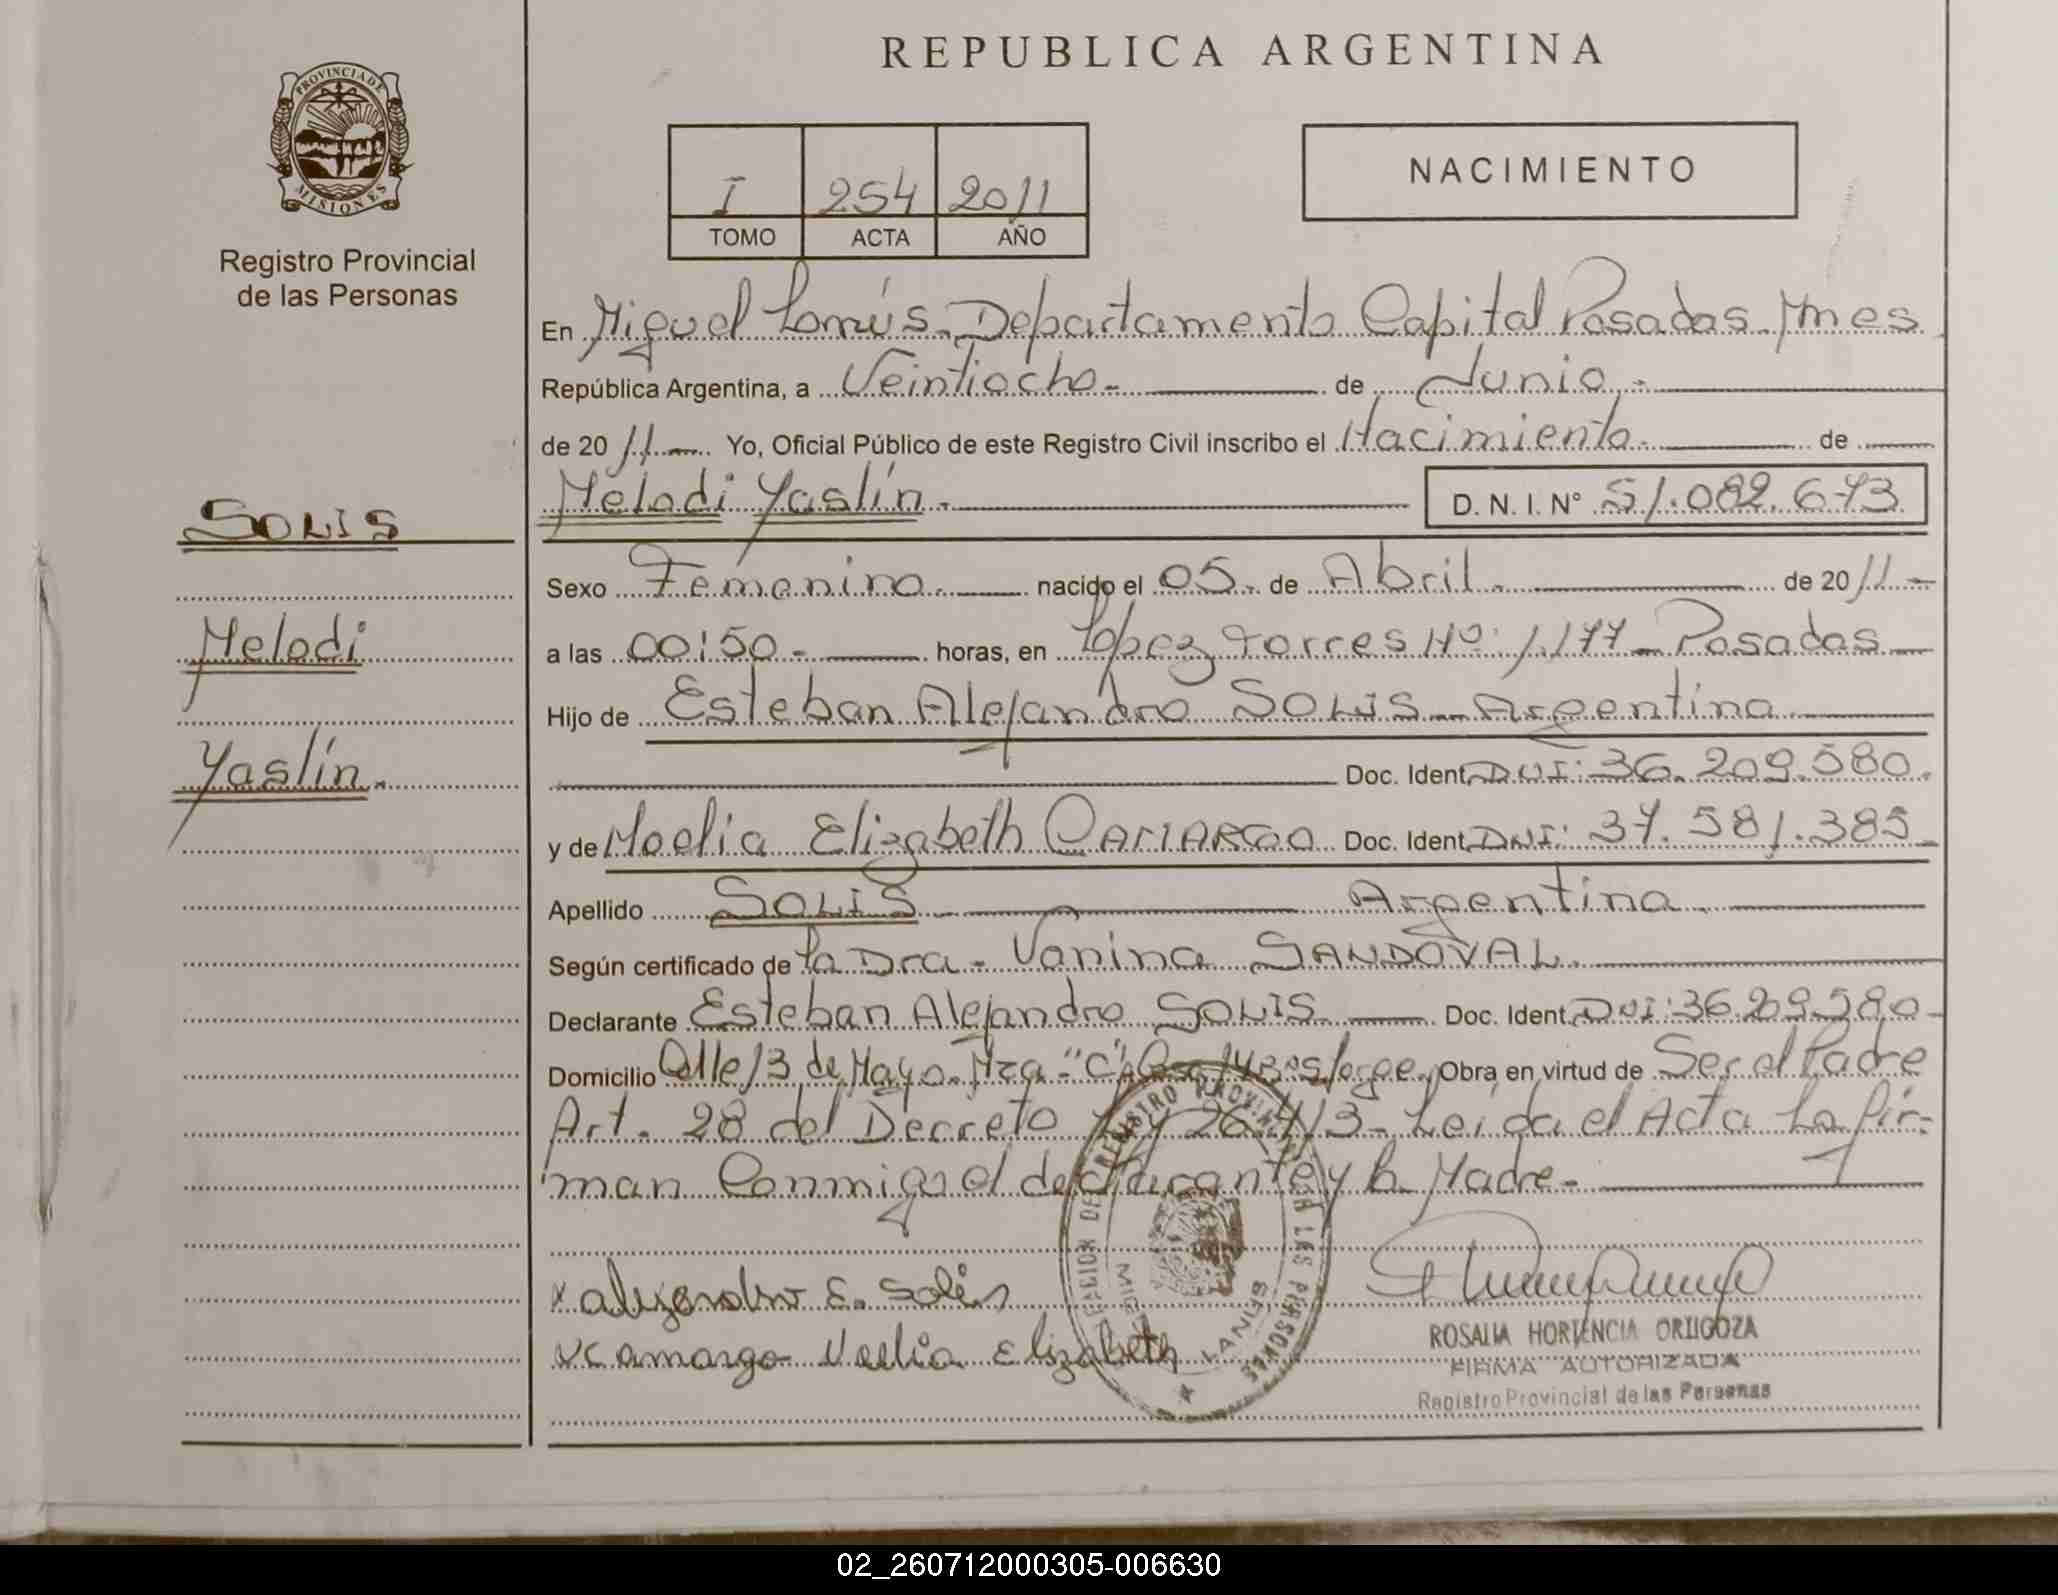 REPUBLICA ARGENTINA
PROVINCIA DE
MISIONES
Registro Provincial
de las Personas
I 254 2011
TOMO ACTA AÑO
NACIMIENTO
En Miguel Lanús. Departamento Capital Posadas. Mnes
República Argentina, a Veintiocho.- de Junio.-
de 2011 Yo, Oficial Público de este Registro Civil inscribo el Nacimiento. de
Melodi Yaslín.- D. N. I. N° 51.082.673
SOLIS
Melodi
Yaslín.
Sexo Femenino. nacido el 05. de Abril. de 2011.-
a las 00:50.- horas, en López Torres Nº: 1.177 - Posadas
Hijo de Esteban Alejandro SOLIS - Argentina.
Doc. Ident. DNI: 36.209.580.
y de Noelia Elizabeth CAMARGO Doc. Ident. DNI: 37.581.385
Apellido SOLIS.- Argentina.
Según certificado de La Dra. Vanina SANDOVAL.
Declarante Esteban Alejandro SOLIS Doc. Ident. DNI: 36.209.580
Domicilio Calle 13 de Mayo. Mza "C" Obra en virtud de Ser el Padre
Art. 28 del Decreto Ley 26.413. Leída el Acta La fir-
man Conmigo el declarante y la Madre.
x alejandro E. Solis
x Camargo Noelia Elizabeth
REGISTRO PROVINCIAL DE LAS PERSONAS
LANUS
ROSALIA HORTENCIA ORTIGOZA
FIRMA AUTORIZADA
Registro Provincial de las Personas
02_260712000305-006630